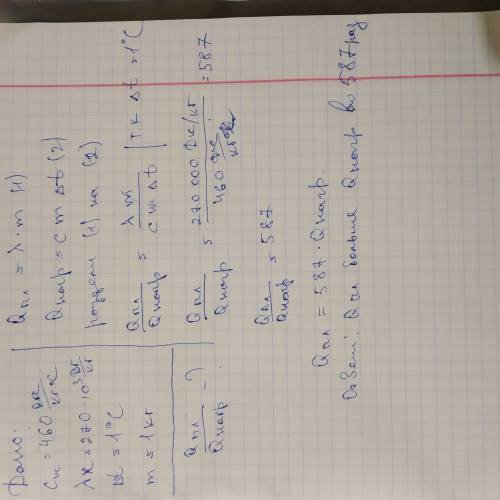 Дано:
Cж = 460 Дж/кг°C
λж = 270·10³ Дж/кг
Δt = 1°C
m = 1 кг
Qпл/Qнагр - ?
Qпл = λ·m (1)
Qнагр = c m Δt (2)
раздели (1) на (2)
Qпл/Qнагр = λm/cmΔt | т.к Δt = 1°C
Qпл/Qнагр = 270 000 Дж/кг / 460 Дж/кг = 587
Qпл/Qнагр = 587
Qпл = 587 · Qнагр.
Ответ: Qпл больше Qнагр в 587 раз